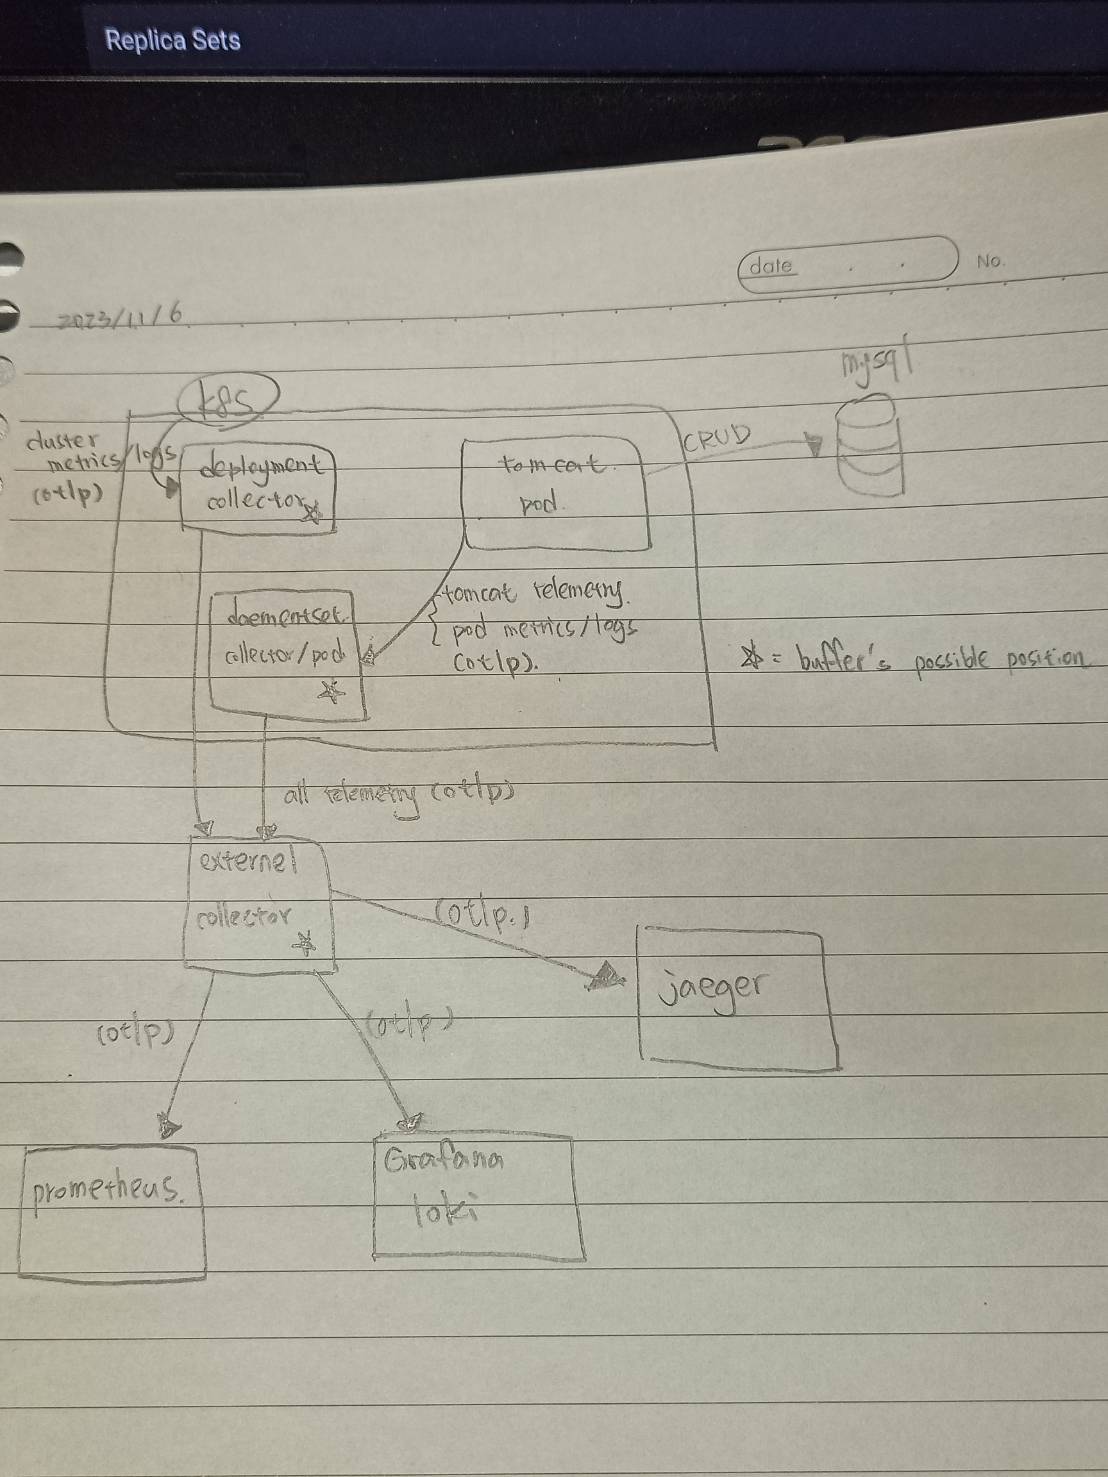 Replica Sets
date
No.
2023/11/6
mysql
k8s
CRUD
cluster
metrics/logs
(otlp)
deployment
collector ☆
tomcat
pod.
daemonset
collector/pod
☆
tomcat telemetry.
pod metrics/logs
(otlp).
☆ = buffer's possible position
all telemetry (otlp)
externel
collector
☆
(otlp.)
jaeger
(otlp)
(otlp)
prometheus.
Grafana
loki